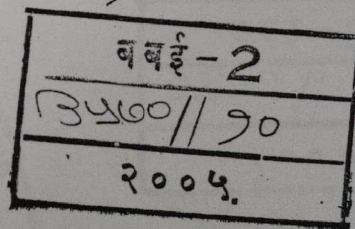 बबई - 2
३५७०//१०
२००५.